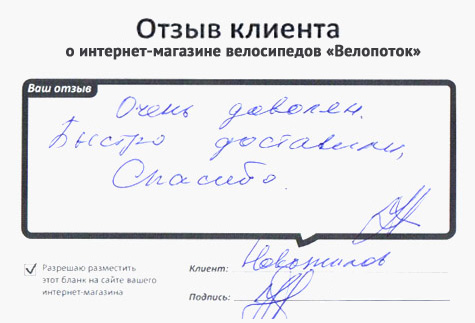 Отзыв клиента
о интернет-магазине велосипедов «Велопоток»
Ваш отзыв
Очень доволен.
Быстро доставили,
Спасибо.
Разрешаю разместить
этот бланк на сайте вашего
интернет-магазина
Клиент: Новожилов
Подпись: